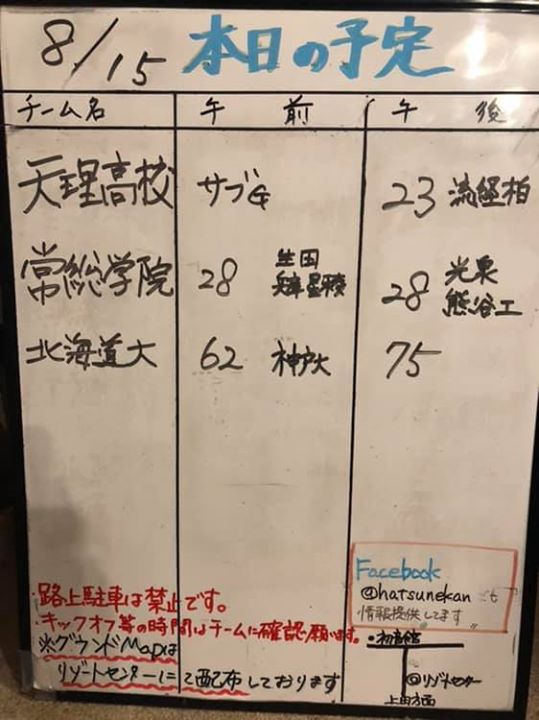 8/15 本日の予定
チーム名 午前 午後
天理高校 サブG 23 流経柏
常総学院 28 生田 28 光泉
星稜 熊谷工
北海道大 62 神戸大 75
Facebook
@hatsunekan にて
情報提供してます
・路上駐車は禁止です。
・キックオフ等の時間はチームに確認願います。
※グラウンドMapは
リゾートセンターにて配布しております
・初音館
@リゾートセンター
上田方面